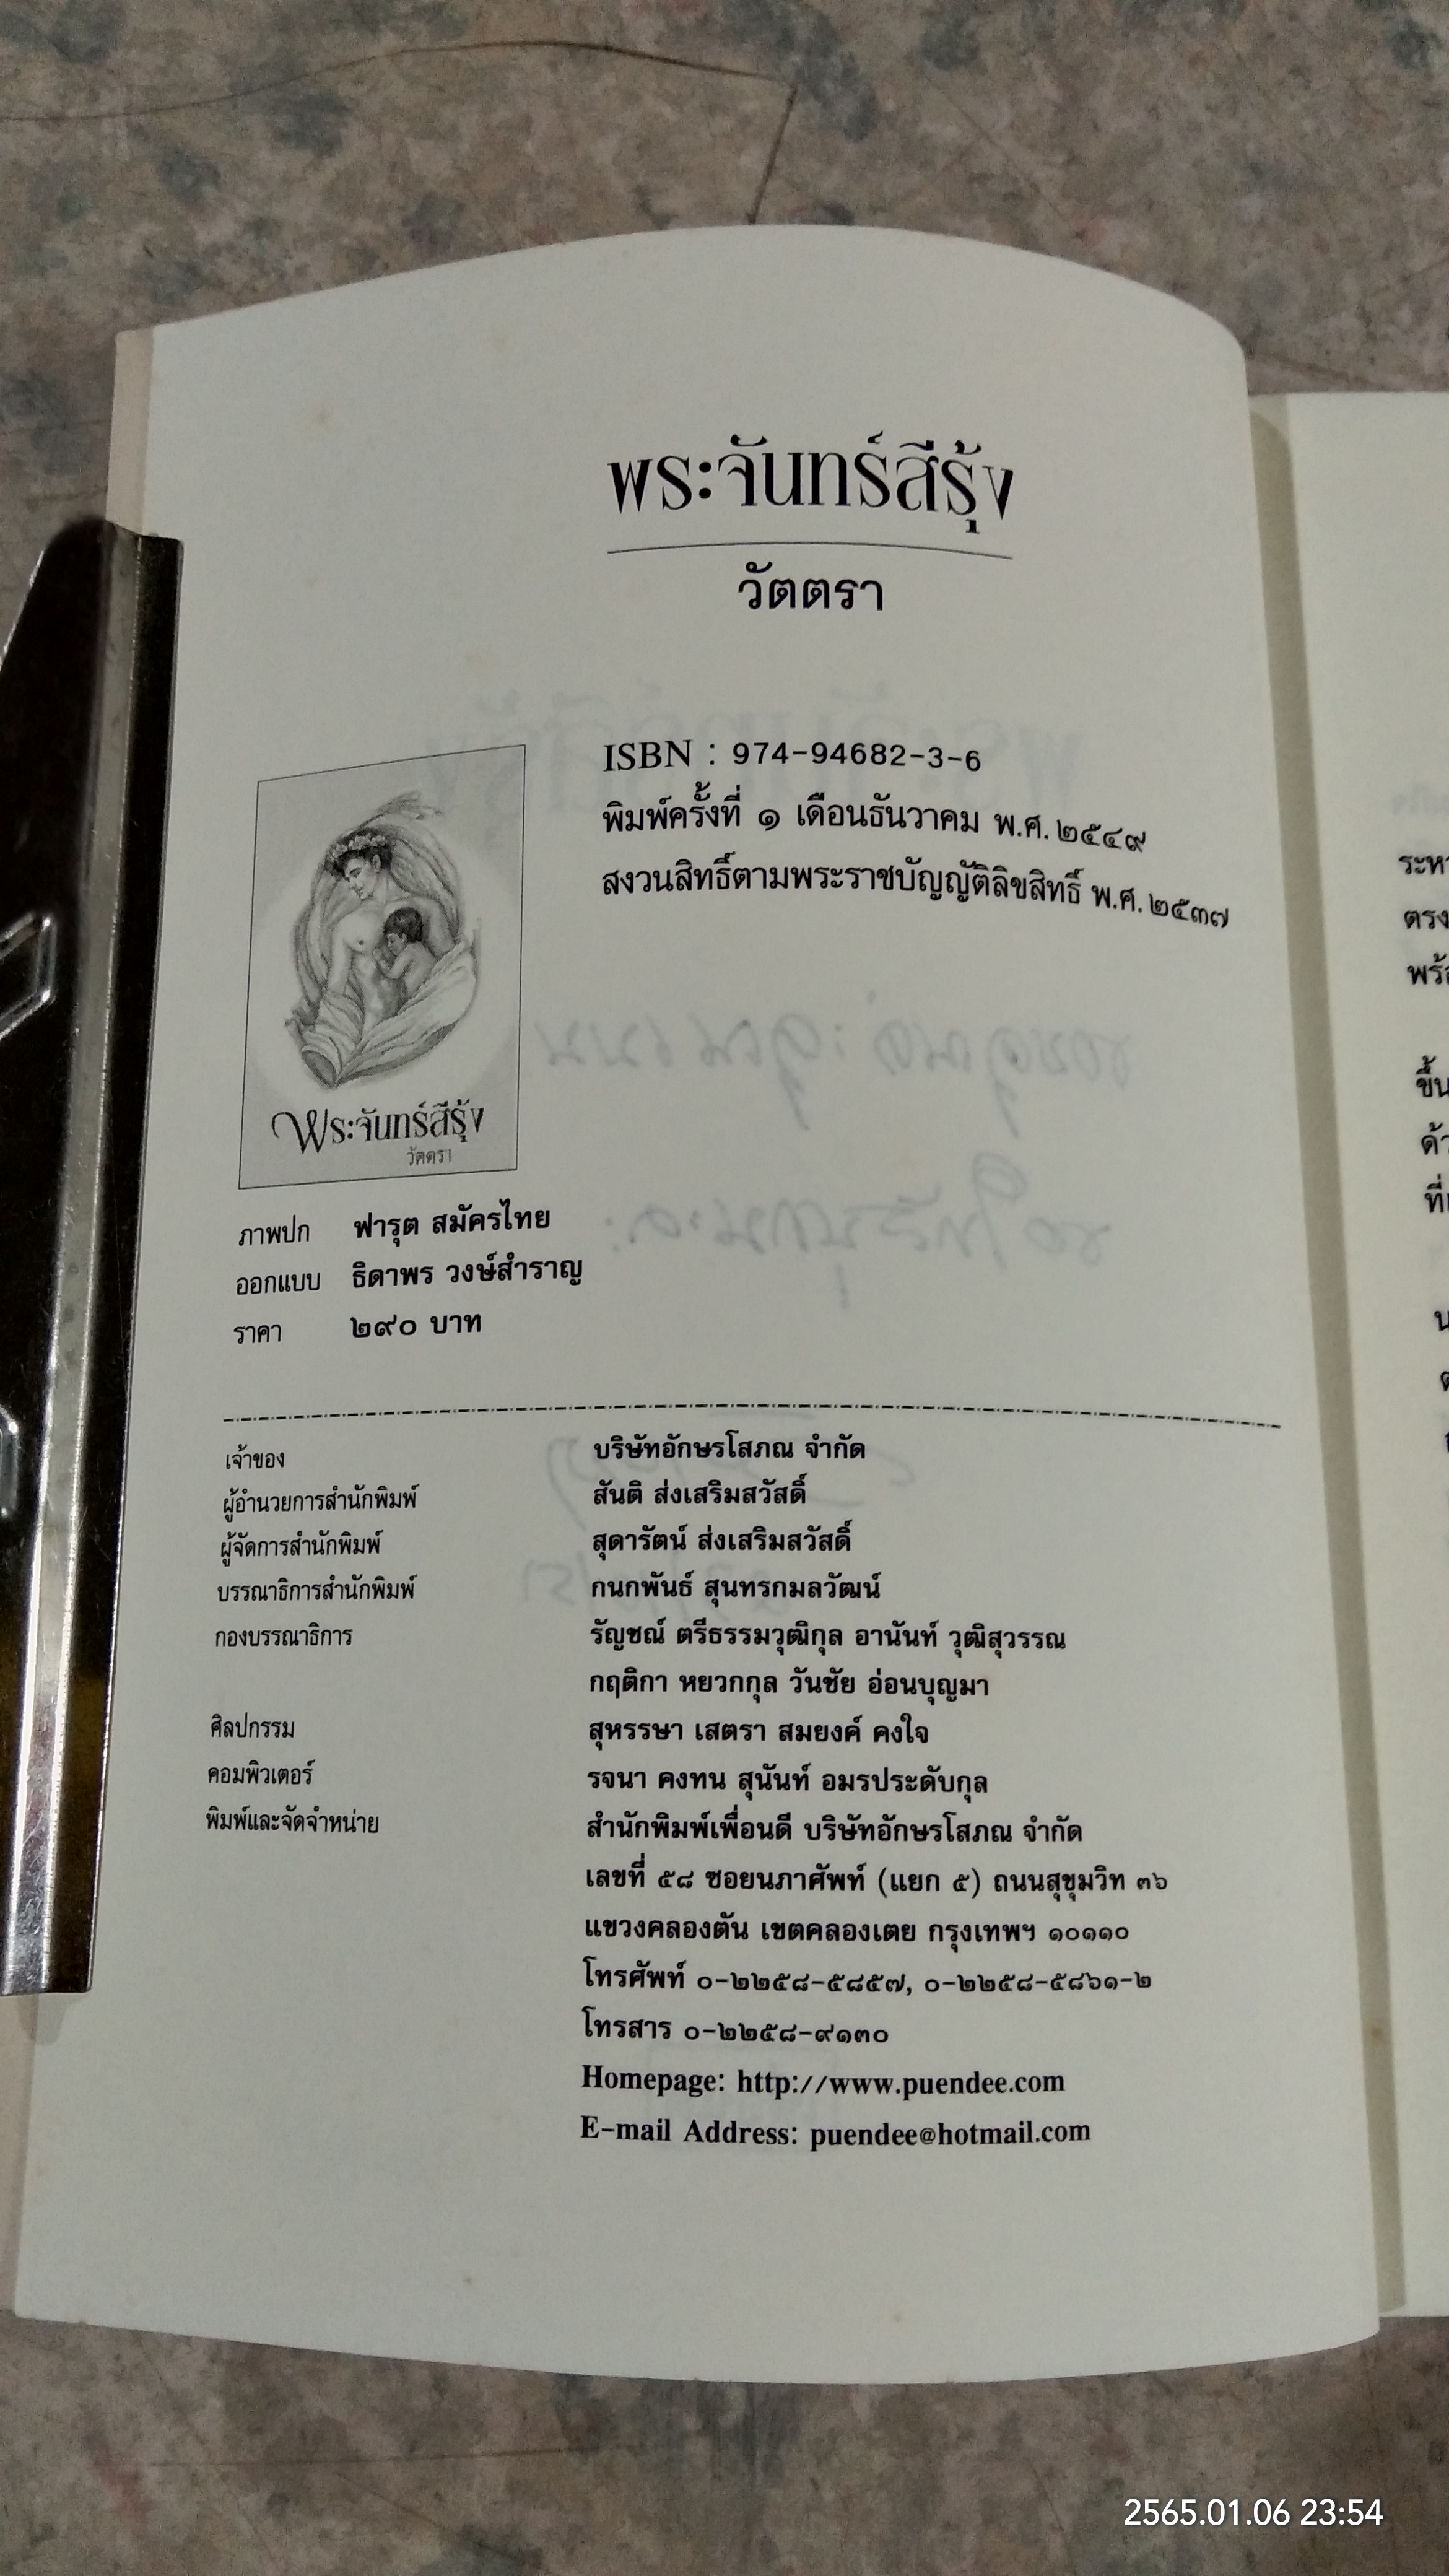 พระจันทร์สีรุ้ง
วัตตรา
ISBN : 974-94682-3-6
พิมพ์ครั้งที่ ๑ เดือนธันวาคม พ.ศ. ๒๕๔๙
สงวนสิทธิ์ตามพระราชบัญญัติลิขสิทธิ์ พ.ศ. ๒๕๓๗
พระจันทร์สีรุ้ง
วัตตรา
ภาพปก ฟารุต สมัครไทย
ออกแบบ ธิดาพร วงษ์สำราญ
ราคา ๒๙๐ บาท
เจ้าของ บริษัทอักษรโสภณ จำกัด
ผู้อำนวยการสำนักพิมพ์ สันติ ส่งเสริมสวัสดิ์
ผู้จัดการสำนักพิมพ์ สุดารัตน์ ส่งเสริมสวัสดิ์
บรรณาธิการสำนักพิมพ์ กนกพันธ์ สุนทรกมลวัฒน์
กองบรรณาธิการ รัญชณ์ ตรีธรรมวุฒิกุล อานันท์ วุฒิสุวรรณ
กฤติกา หยวกกุล วันชัย อ่อนบุญมา
ศิลปกรรม สุหรรษา เสตรา สมยงค์ คงใจ
คอมพิวเตอร์ รจนา คงทน สุนันท์ อมรประดับกุล
พิมพ์และจัดจำหน่าย สำนักพิมพ์เพื่อนดี บริษัทอักษรโสภณ จำกัด
เลขที่ ๕๘ ซอยนภาศัพท์ (แยก ๕) ถนนสุขุมวิท ๓๖
แขวงคลองตัน เขตคลองเตย กรุงเทพฯ ๑๐๑๑๐
โทรศัพท์ ๐-๒๒๕๘-๕๘๕๗, ๐-๒๒๕๘-๕๘๖๑-๒
โทรสาร ๐-๒๒๕๘-๙๑๓๐
Homepage: http://www.puendee.com
E-mail Address: puendee@hotmail.com
2565.01.06 23:54